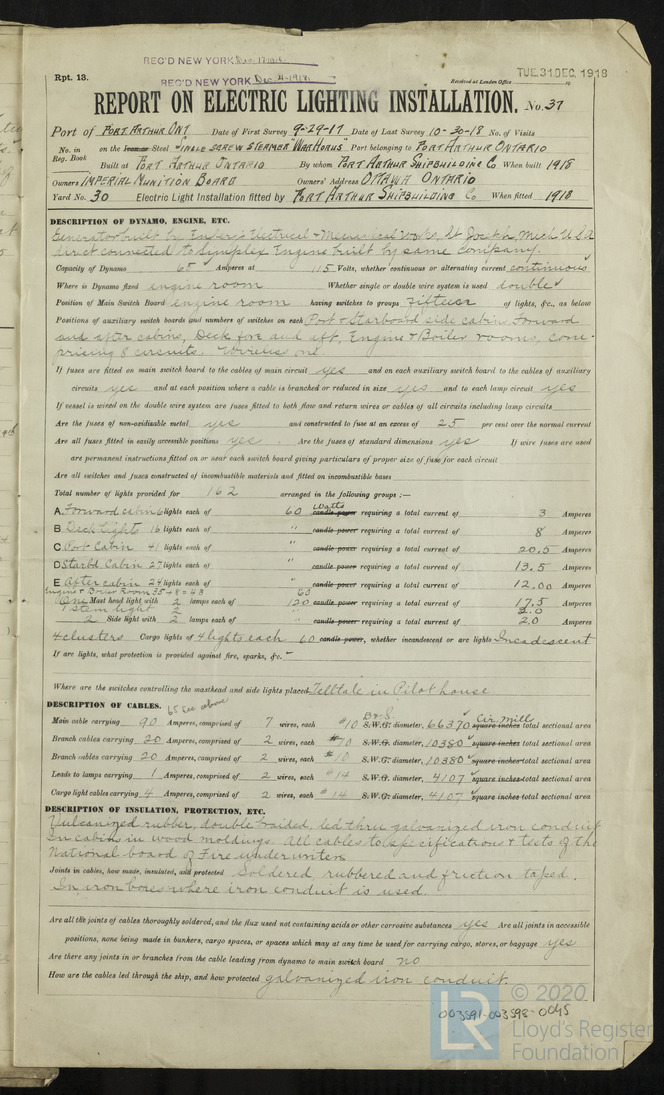 REC'D NEW YORK Dec. 17 1918
REC'D NEW YORK Dec. 4-1918
Rpt. 13.
Received at London Office
TUE. 31 DEC. 1918
REPORT ON ELECTRIC LIGHTING INSTALLATION. No. 37
Port of PORT ARTHUR ONT Date of First Survey 9-29-17 Date of Last Survey 10-30-18 No. of Visits
No. in Reg. Book on the Iron or Steel SINGLE SCREW STEAMER "WAR HORUS" Port belonging to PORT ARTHUR ONTARIO
Built at PORT ARTHUR ONTARIO By whom PORT ARTHUR SHIPBUILDING Co When built 1918
Owners IMPERIAL MUNITION BOARD Owners' Address OTTAWA ONTARIO
Yard No. 30 Electric Light Installation fitted by PORT ARTHUR SHIPBUILDING Co When fitted 1918
DESCRIPTION OF DYNAMO, ENGINE, ETC.
Generator built by Electrical & Mechanical Works, St Joseph, Mich U.S.A
direct connected to Simplex Engine built by same company.
Capacity of Dynamo 65 Amperes at 115 Volts, whether continuous or alternating current continuous
Where is Dynamo fixed engine room Whether single or double wire system is used double
Position of Main Switch Board engine room having switches to groups Fifteen of lights, &c., as below
Positions of auxiliary switch boards and numbers of switches on each Port & Starboard side cabin, Forward
and after cabins, Deck fore and aft, Engine & Boiler rooms, com-
prising 8 circuits. Wireless one.
If fuses are fitted on main switch board to the cables of main circuit yes and on each auxiliary switch board to the cables of auxiliary
circuits yes and at each position where a cable is branched or reduced in size yes and to each lamp circuit yes
If vessel is wired on the double wire system are fuses fitted to both flow and return wires or cables of all circuits including lamp circuits
Are the fuses of non-oxidizable metal yes and constructed to fuse at an excess of 25 per cent over the normal current
Are all fuses fitted in easily accessible positions yes. Are the fuses of standard dimensions yes If wire fuses are used
are permanent instructions fitted on or near each switch board giving particulars of proper size of fuse for each circuit
Are all switches and fuses constructed of incombustible materials and fitted on incombustible bases
Total number of lights provided for 162 arranged in the following groups :—
A Forward cabin 6 lights each of 60 watts candle power requiring a total current of 3 Amperes
B Deck Lights 16 lights each of " candle power requiring a total current of 8 Amperes
C Port Cabin 41 lights each of " candle power requiring a total current of 20.5 Amperes
D Starbd Cabin 27 lights each of " candle power requiring a total current of 13.5 Amperes
E After cabin 24 lights each of " candle power requiring a total current of 12.00 Amperes
Engine & Boiler Room 35 + 8 = 43 60 17.5
One Mast head light with 2 lamps each of 120 candle power requiring a total current of Amperes
1 Stern light 2 " 2.0
2 Side light with 2 lamps each of " candle power requiring a total current of 2.0 Amperes
4 clusters Cargo lights of 4 lights each 60 candle power, whether incandescent or arc lights Incadescent
If arc lights, what protection is provided against fire, sparks, &c. -
Where are the switches controlling the masthead and side lights placed Telltale in Pilot house
DESCRIPTION OF CABLES. 65 see above
Main cable carrying 90 Amperes, comprised of 7 wires, each #10 B&S S.W.G. diameter, 66370 Cir. Mills square inches total sectional area
Branch cables carrying 20 Amperes, comprised of 2 wires, each #10 S.W.G. diameter, 10380 square inches total sectional area
Branch cables carrying 20 Amperes, comprised of 2 wires, each #10 S.W.G. diameter, 10380 square inches total sectional area
Leads to lamps carrying 1 Amperes, comprised of 2 wires, each #14 S.W.G. diameter, 4107 square inches total sectional area
Cargo light cables carrying 4 Amperes, comprised of 2 wires, each #14 S.W.G. diameter, 4107 square inches total sectional area
DESCRIPTION OF INSULATION, PROTECTION, ETC.
Vulcanized rubber, double braided, led thru galvanized iron conduit
In cabins in wood moldings. All cables to specifications & tests of the
National board of Fire underwriters
Joints in cables, how made, insulated, and protected Soldered, rubbered and friction taped.
In iron boxes where iron conduit is used.
Are all the joints of cables thoroughly soldered, and the flux used not containing acids or other corrosive substances yes Are all joints in accessible
positions, none being made in bunkers, cargo spaces, or spaces which may at any time be used for carrying cargo, stores, or baggage yes
Are there any joints in or branches from the cable leading from dynamo to main switch board no
How are the cables led through the ship, and how protected galvanized iron conduit.
© 2020
LR
Lloyd's Register
Foundation
003591-003598-0045